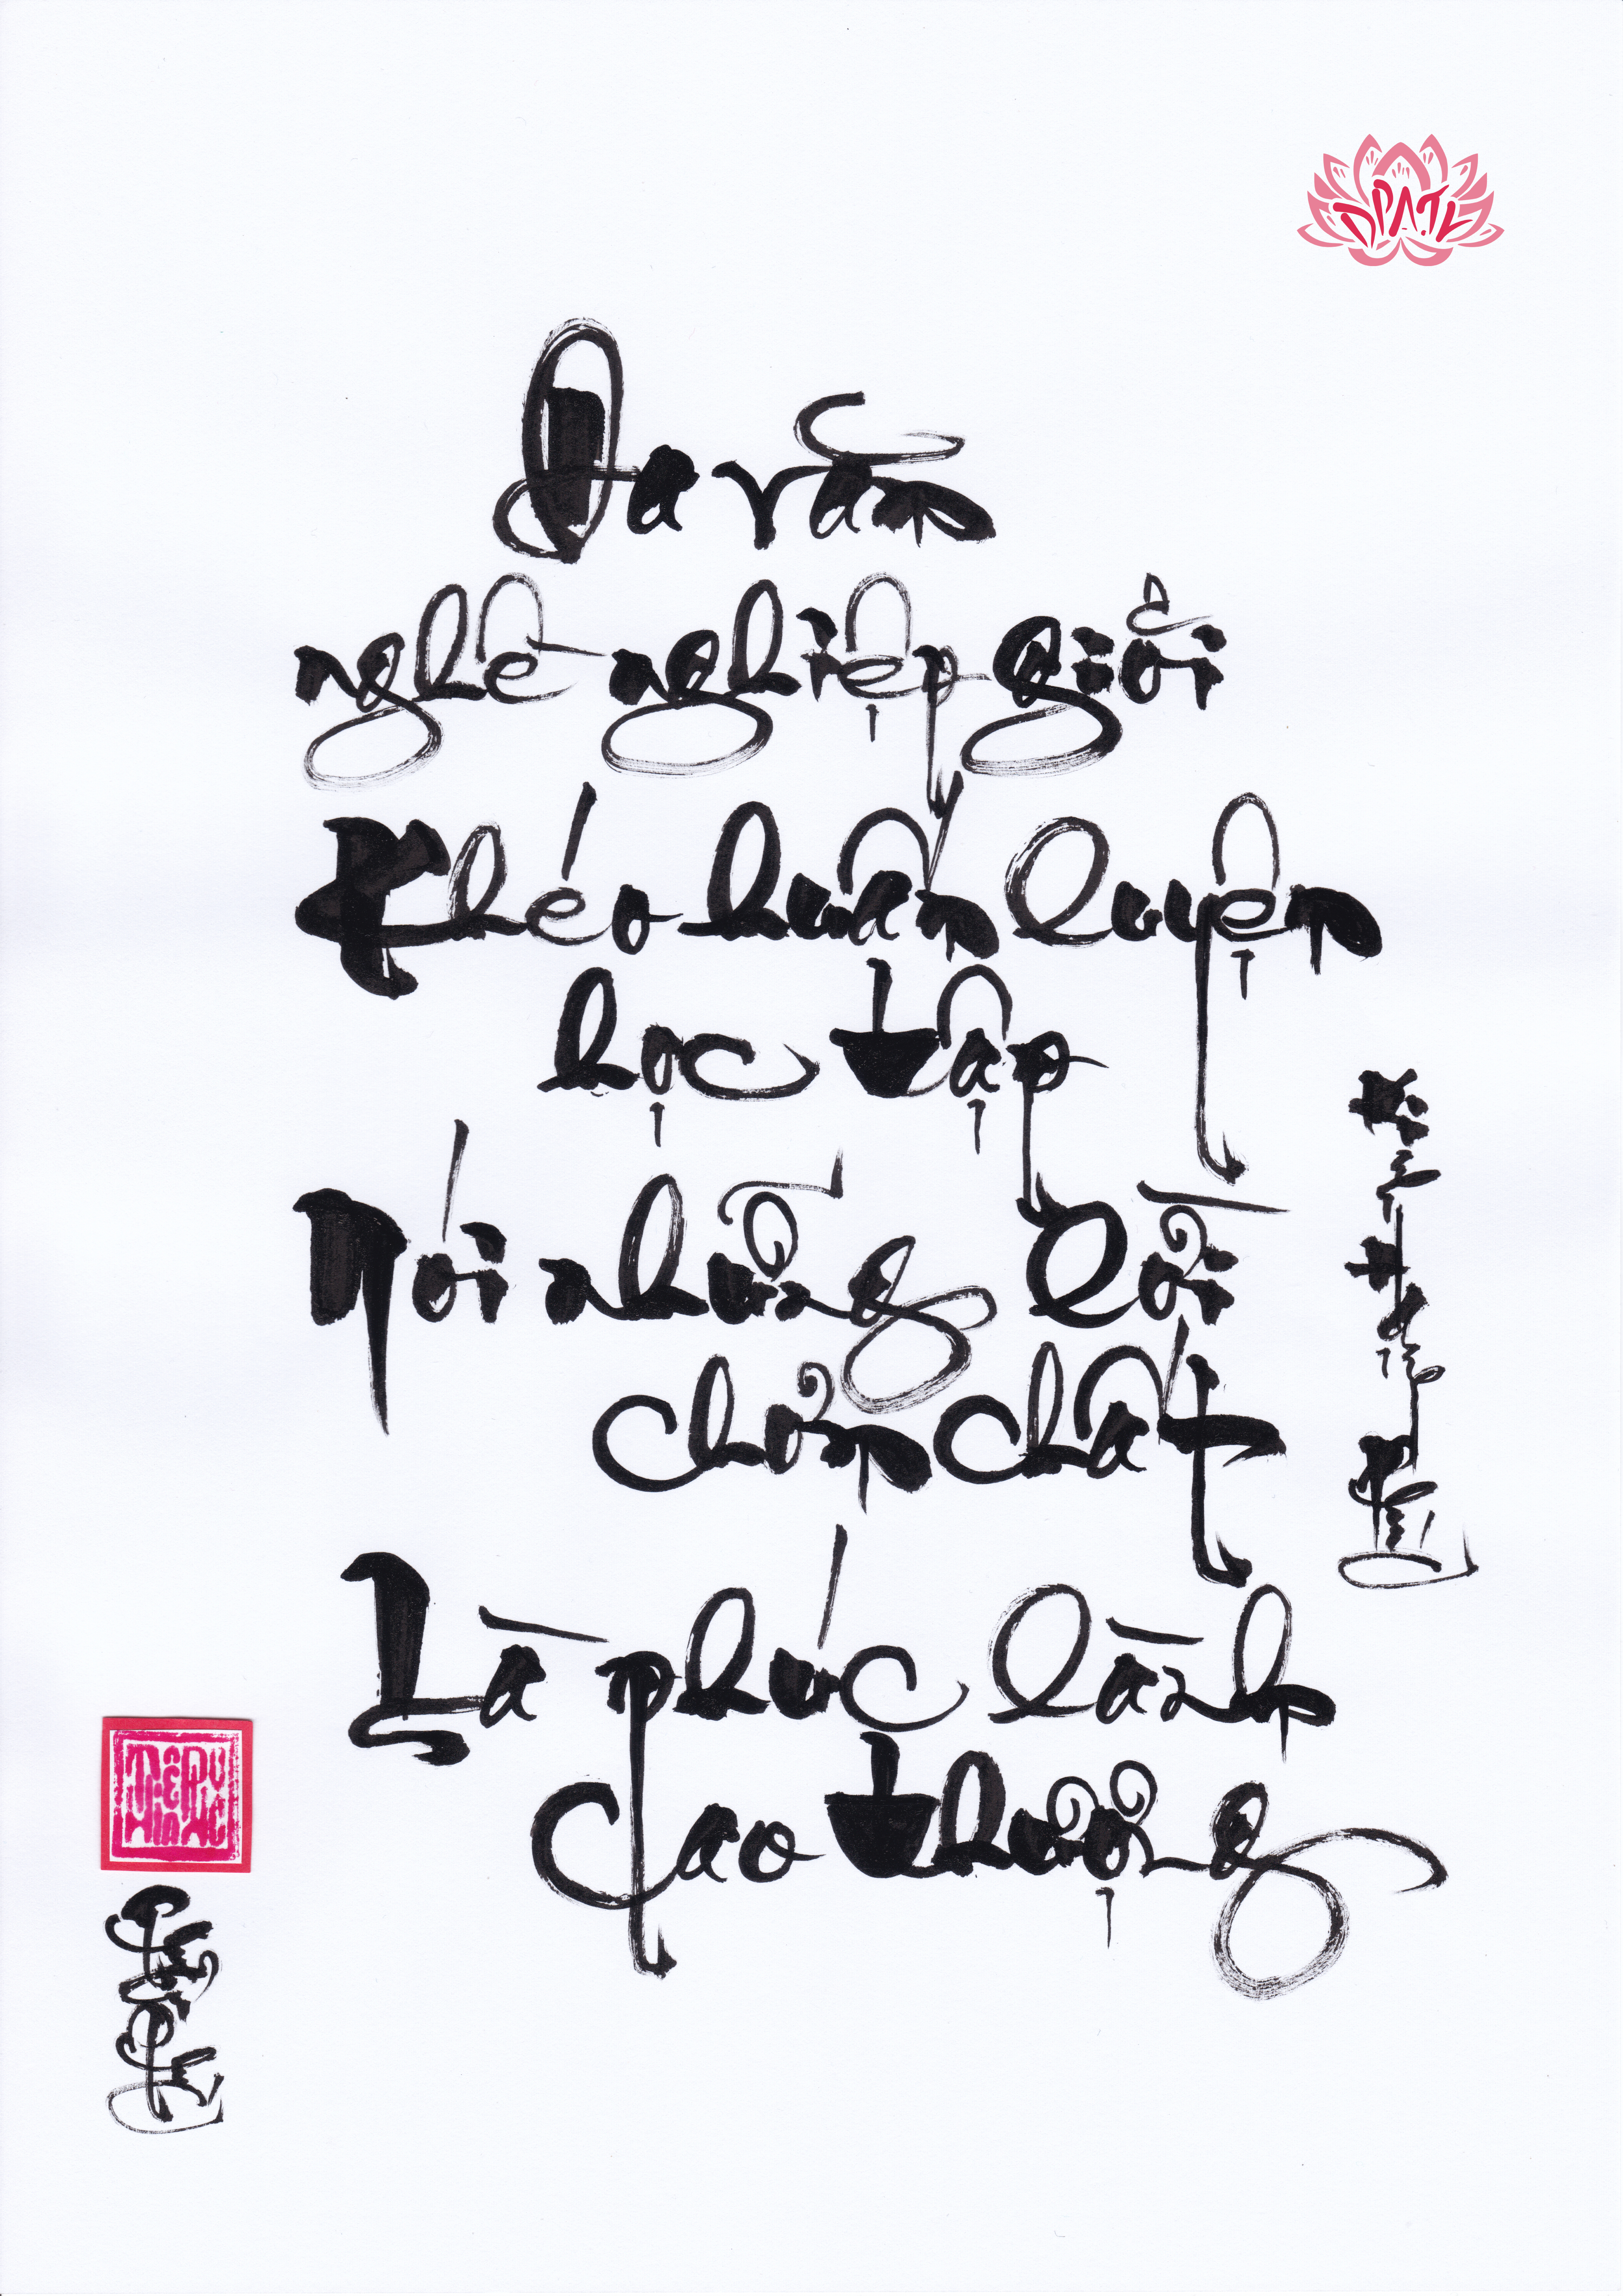 ĐPATK
Đa văn
nghề nghiệp giỏi
Khéo huấn luyện
học tập
Nói những lời
chơn chất
Là phúc lành
cao thượng